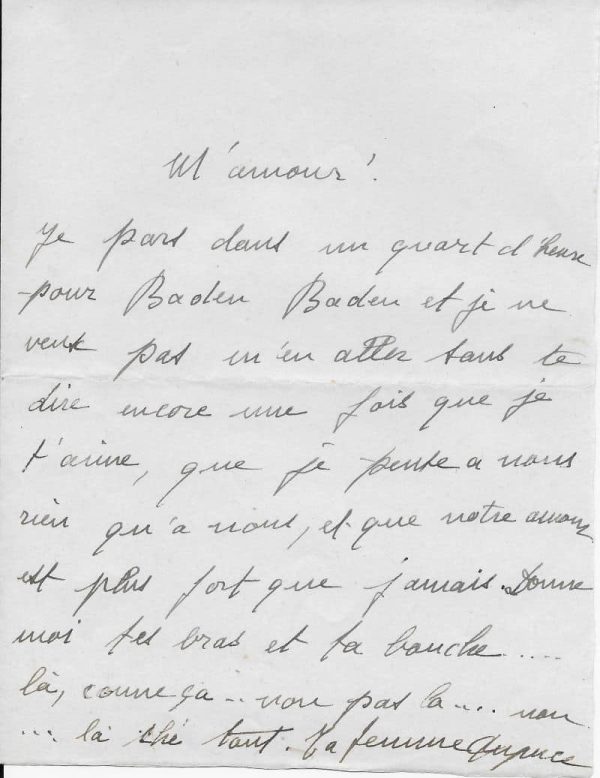 M'amour!
Je pars dans un quart d'heure
pour Baden Baden et je ne
veux pas m'en aller sans te
dire encore une fois que je
t'aime, que je pense a nous
rien qu'a nous, et que notre amour
est plus fort que jamais. Donne
moi tes bras et ta bouche.....
là, comme ça .. non pas la.... non
... là
tant. Ta femme